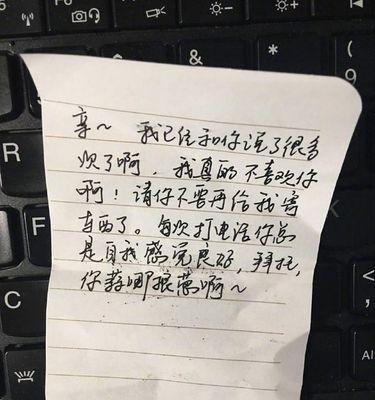 F6
(
9
R
F
C
亲~ 我已经和你说了很多
次了啊,我真的不喜欢你
啊!请你不要再给我寄
东西了。每次打电话你总
是自我感觉良好,拜托,
你蒜哪根葱啊~